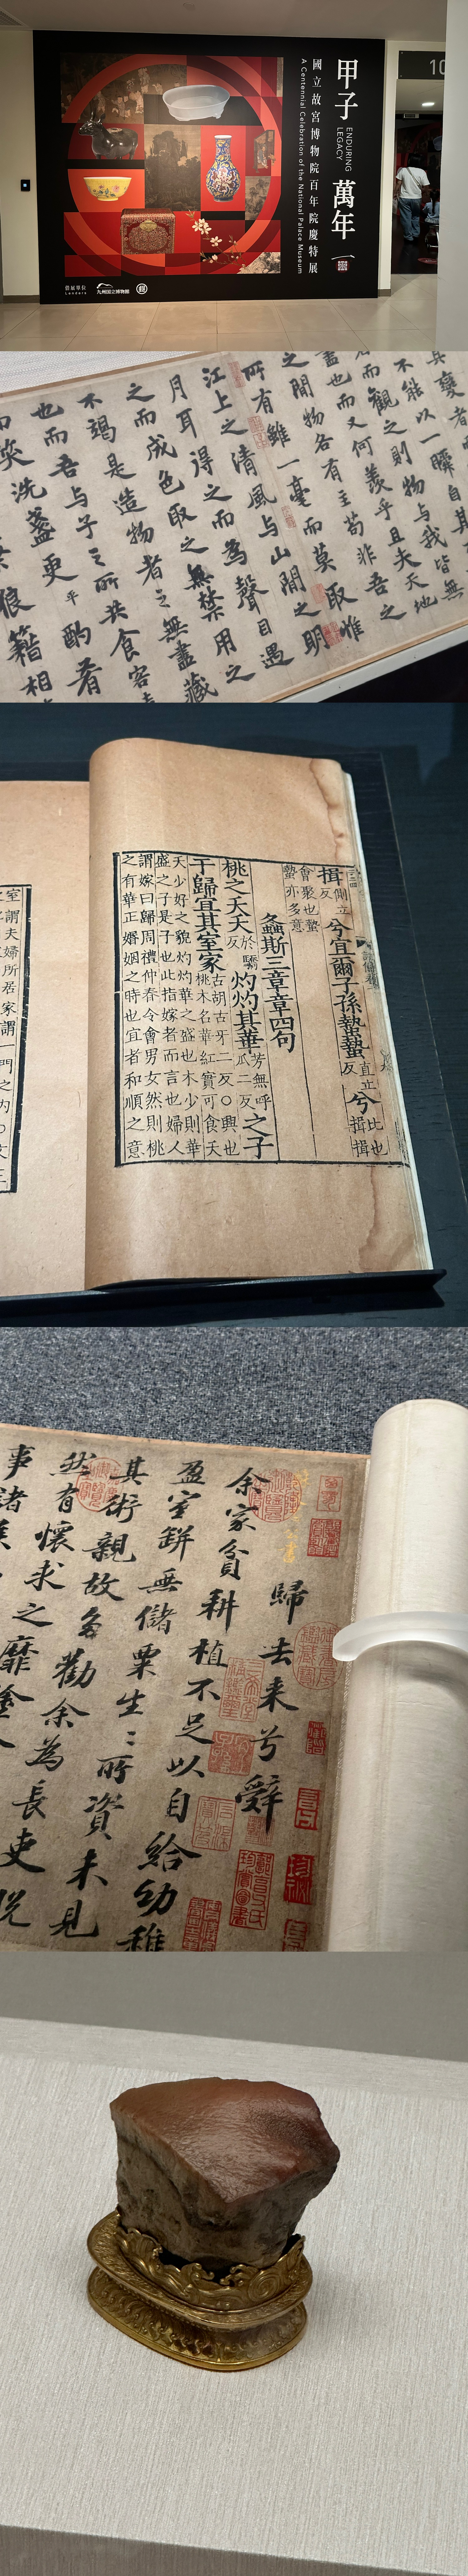 甲子萬年
ENDURING LEGACY
國立故宮博物院百年院慶特展
A Centennial Celebration of the National Palace Museum
借展單位
Lenders
九州国立博物館
10
其變者
不能以一瞬自其
而觀之則物與我皆無
盡也而又何羨乎且夫天地
之間物各有主苟非吾之
所有雖一毫而莫取惟
江上之清風與山間之明
月耳得之而為聲目遇
之而成色取之無禁用之
不竭是造物者之無盡藏
也而吾與子之所共食客
而笑洗盞更酌肴
狼籍相
揖側立反兮宜爾子孫蟄蟄直立反兮比也揖揖
會聚也蟄
蟄亦多意
螽斯三章章四句
桃之夭夭於驕反灼灼其華芳無呼瓜二反之子
于歸宜其室家古胡古牙二反○興也
桃木名華紅實可食夭
夭少好之貌灼灼華之盛也木少則華
盛之子是子也此指嫁者而言也婦人
謂嫁曰歸周禮仲春令會男女然則桃
之有華正婚姻之時也宜者和順之意
室謂夫婦所居家謂一門之內
歸去来兮辭
余家貧耕植不足以自給幼稚
盈室缾無儲粟生〻所資未見
其術親故多勸余為長吏脫
然有懷求之靡塗
事諸